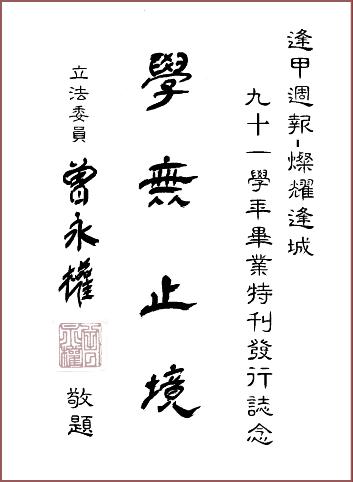 逢甲週報-燦耀逢城
九十一學年畢業特刊發行誌念
學無止境
立法委員 曾永權 敬題